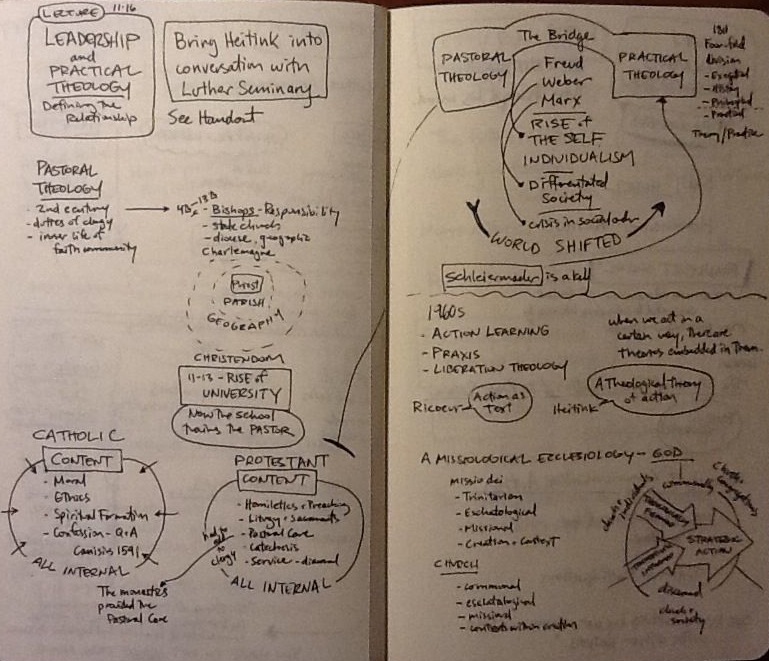 LECTURE 11-16
LEADERSHIP
and
PRACTICAL
THEOLOGY
Defining the
Relationship
Bring Heitink into
conversation with
Luther Seminary
See Handout
PASTORAL
THEOLOGY
- 2nd century
- duties of clergy
- inner life of
faith community
- Bishops - Responsibility
- state church
- diocese, geographic
Charlemagne
Priest
PARISH
GEOGRAPHY
CHRISTENDOM
11-13 - RISE of
UNIVERSITY
Now the school
trains the PASTOR
CATHOLIC
CONTENT
- Moral
- Ethics
- Spiritual Formation
- Confession - Q+A
Canisius 1591
ALL INTERNAL
The monasteries
provided the
Pastoral Care
PROTESTANT
CONTENT
- Homiletics + Preaching
- Liturgy + Sacraments
- Pastoral Care
- Catechesis
- Service - diaconal
ALL INTERNAL
clergy
The Bridge
PASTORAL
THEOLOGY
PRACTICAL
THEOLOGY
Freud
Weber
Marx
RISE of
THE SELF
INDIVIDUALISM
Differentiated
Society
crisis in social order
WORLD SHIFTED
Four-fold
division
- Exegetical
- History
- Practical
Theory/Practice
Schleiermacher is a
1960s
- ACTION LEARNING
- PRAXIS
- LIBERATION THEOLOGY
when we act in a
certain way, there are
theories embedded in them.
Ricoeur
Action as
Text
Heitink
A Theological Theory
of action
A MISSIOLOGICAL ECCLESIOLOGY - GOD
missio dei
- Trinitarian
- Eschatological
- Missional
- Creation + Context
CHURCH
- communal
- eschatological
- missional
- contexts within creation
community
church + individuals
STRATEGIC
ACTION
discerned
church +
society